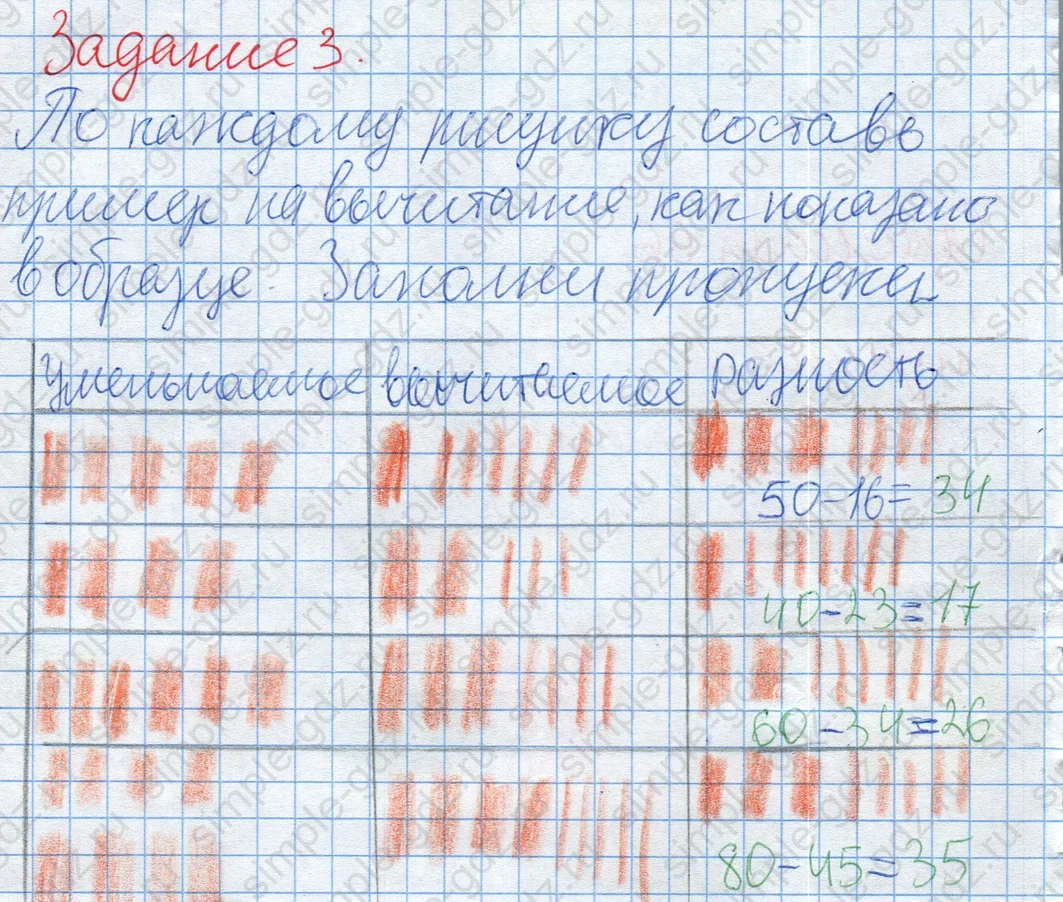 Задание 3.
По каждому рисунку составь
пример на вычитание, как показано
в образце. Заполни пропуски
уменьшаемое вычитаемое разность
50-16=34
40-23=17
60-34=26
80-45=35
simple-gdz.ru